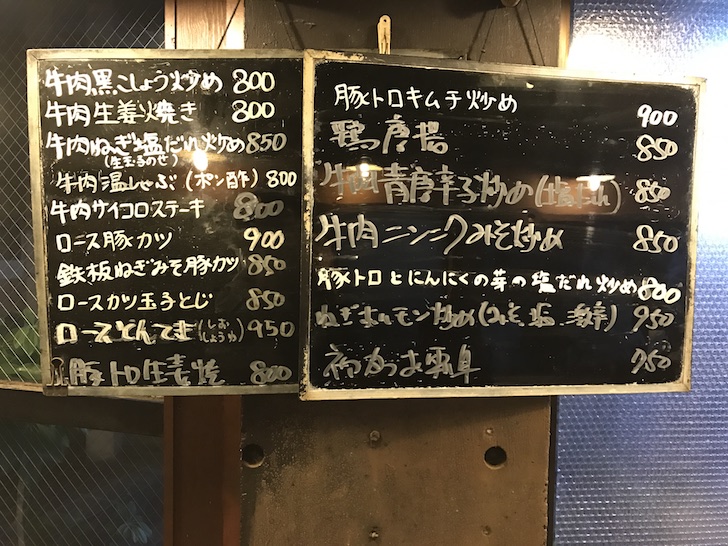 牛肉黒こしょう炒め 800
牛肉生姜焼き 800
牛肉ねぎ塩だれ炒め 850
(生玉子のせ)
牛肉温しゃぶ(ポン酢) 800
牛肉サイコロステーキ 800
ロース豚カツ 900
鉄板ねぎみそ豚カツ 850
ロースカツ玉子とじ 850
ロースとんてき(しおしょうゆ) 950
豚トロ生姜焼 800
豚トロキムチ炒め 900
鶏唐揚 850
牛肉青唐辛子炒め(塩だれ) 850
牛肉ニンニクみそ炒め 850
豚トロとにんにくの芽の塩だれ炒め 800
ねぎホルモン炒め(みそ、塩、 950
950